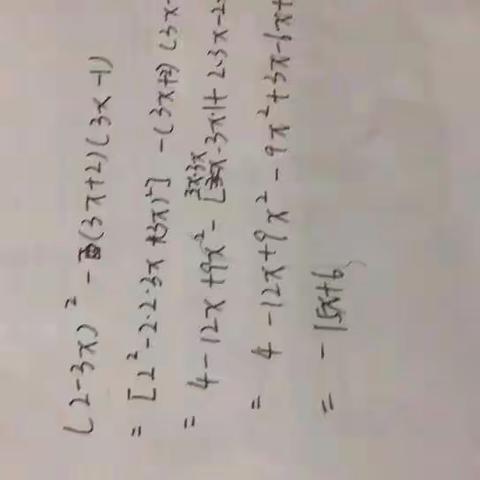 (2-3x)² - (3x+2)(3x-1)
= [2²-2·2·3x+(3x)²] - (3x+2)(3x-
= 4-12x+9x²-[3x·3x-3x·1+2·3x-2
= 4-12x+9x²-9x²+3x-6x+
= -15x+6